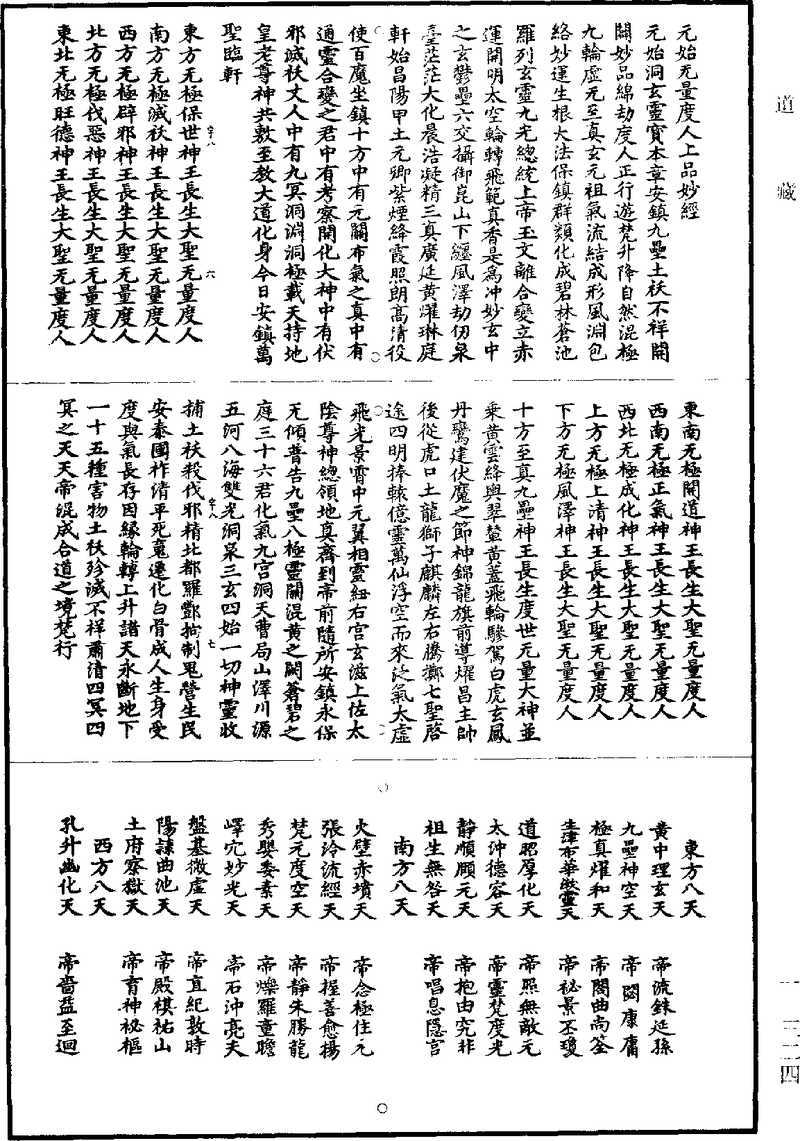 道藏
元始无量度人上品妙經
元始洞玄靈寶本章安鎮九壘土祅不祥開
關妙品綿劫度人正行遊梵升降自然混極
九輪虛无至真玄元祖氣流結成形風淵包
絡妙運生根大法保鎮群類化成碧林蒼池
羅列玄靈九光總統上帝玉文離合變立赤
運開明太空輪轉飛範真香是爲冲妙玄中
之玄鬱壘六交攝御崑山下纏風澤劫仞泉
臺茫茫大化晨浩凝精三真廣延黃耀琳庭
軒始昌陽甲土元卿紫煙絳霞照朗高清役
使百魔坐鎮十方中有元關布氣之真中有
通靈合變之君中有考察開化大神中有伏
邪滅祅丈人中有九冥洞淵洞極載天持地
皇老尊神共敷至教大道化身今日安鎮萬
聖臨軒
東方无極保世神王長生大聖无量度人
南方无極滅祅神王長生大聖无量度人
西方无極辟邪神王長生大聖无量度人
北方无極伐惡神王長生大聖无量度人
東北无極旺德神王長生大聖无量度人
字八
六
東南无極開道神王長生大聖无量度人
西南无極正氣神王長生大聖无量度人
西北无極成化神王長生大聖无量度人
上方无極上清神王長生大聖无量度人
下方无極風澤神王長生大聖无量度人
十方至真九壘神王長生度世无量大神並
乘黃雲絳輿翠鳌黃蓋飛輪驂駕白虎玄鳳
丹鸞建伏魔之節神錦龍旗前導燿昌主帥
後從虎口土龍獅子麒麟左右騰擲七聖啓
途四明捧轅億靈萬仙浮空而來泛氣太虛
飛光景霄中元翼相靈紐右宮玄滋上佐太
陰尊神總領地真齊到帝前隨所安鎮永保
无傾普告九壘八極靈關混黃之闕蒼碧之
庭三十六君化氣九宮洞天曹局山澤川源
五河八海雙光洞泉三玄四始一切神靈收
捕土祅殺伐邪精北都羅酆拘制鬼營生民
安泰國祚清平死魂遷化白骨成人生身受
度與氣長存因緣輪轉上升諸天永斷地下
一十五種害物土祅殄滅不祥肅清四冥四
冥之天天帝混成合道之境梵行
字八
七
東方八天
黃中理玄天 帝流銖延孫
九壘神空天 帝閟康膺
極真燿和天 帝閣曲尚筌
生津布華歘靈天 帝祕景丕瓊
道昭厚化天 帝照無敵元
太沖德容天 帝靈梵度光
靜順願元天 帝抱由究非
祖生無咎天 帝唱息隱宫
南方八天
火壁赤墳天 帝念極住元
張泠流經天 帝握善愈揚
梵元度空天 帝靜朱勝龍
秀嬰委素天 帝爍羅童瞻
嶧穴妙光天 帝石沖亮夫
盤基微虛天 帝直紀敦時
陽諫曲池天 帝殿棋祐山
土府察獄天 帝育神祕樞
西方八天
孔升幽化天 帝嗇益至迴
一 三二四